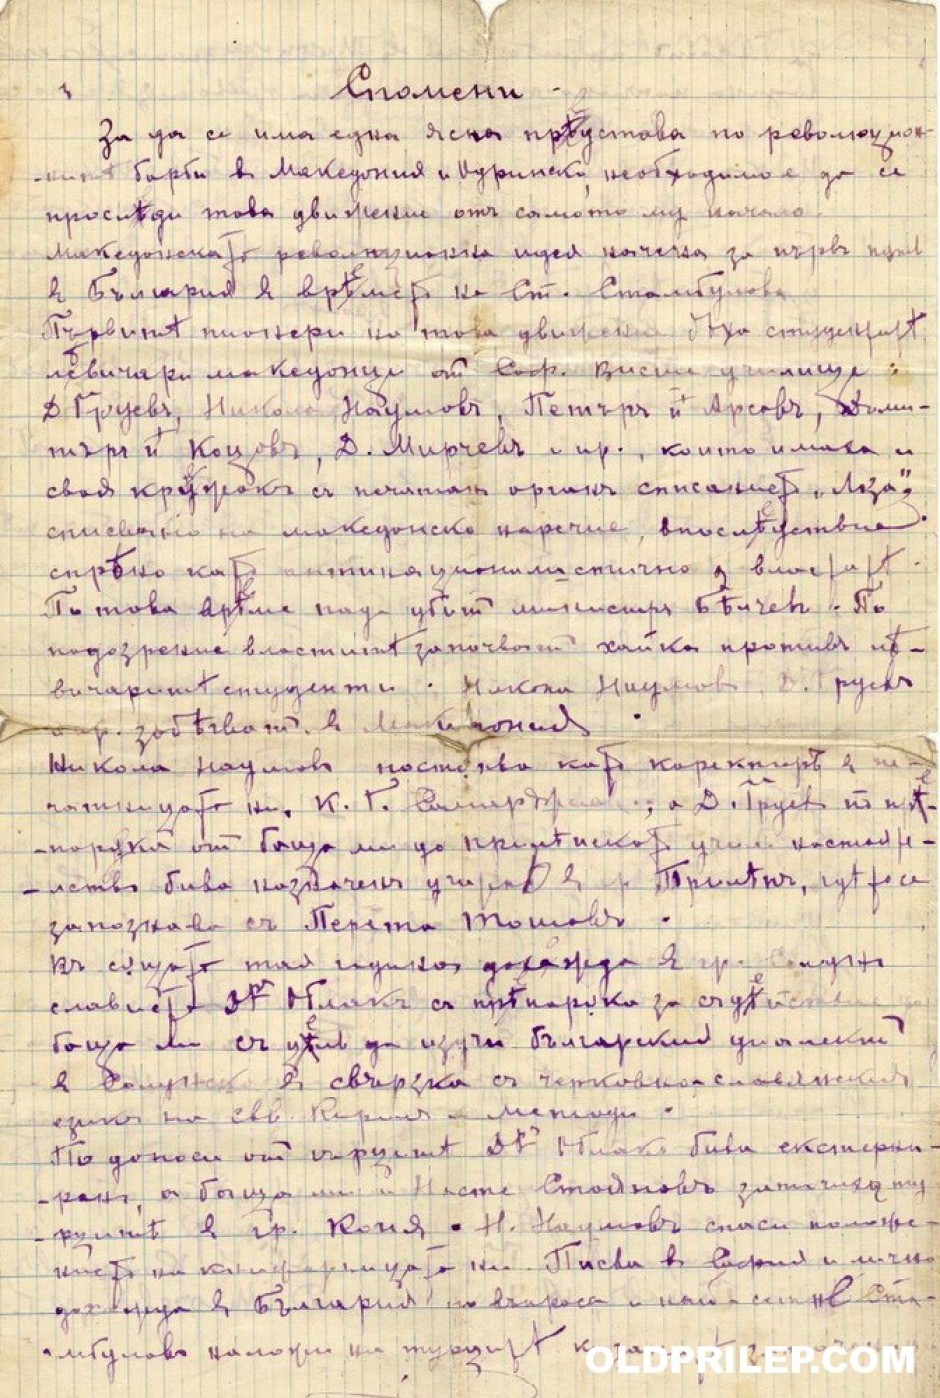 Спомени
За да се има една ясна прѣдстова по революцион-
нитѣ борби в Македония и Одринско, необходимо е да се
прослѣди това движение отъ самото му начало.
Македонската революционна идея начена за първъ път
в България в врѣмето на Ст. Стамбулова
Първитѣ пионери на това движение бѣха студентитѣ
лѣвичари македонци от Соф. висше училище:
Д Груевъ, Никола Наумовъ, Петъръ п. Арсовъ, Дими-
търъ п. Коцовъ, Д. Мирчевъ и пр., които имаха и
свой кръжокъ с печатан органъ списанието „Лоза"
списвано на македонско наречие, впослѣдствие
спрѣно като антинационалистично з властьта.
По това врѣме пада убит министра Бѣлчев. По
подозрение властитѣ започват хайка противъ лѣ-
вичаритѣ студенти. Никола Наумов Д. Груевъ
и пр. забѣгват в Македония.
Никола Наумовъ постѫпва като коректоръ в пе-
чатницата ни, К. Г. Самарджиев; а Д. Груев по прѣ-
порѫка от баща ми до Прилѣпското учил. настоят-
елство бива назначенъ учител в гр Прилѣпъ, гдѣто се
запознава съ Перета Тошовъ.
Въ същата тая година дохажда в гр. Солунъ
слависта Дръ Облакъ съ прѣпорѫка за съдѣйствие
баща ми съ цѣль да изучи българския диалект
в Солунско в свързка съ черковно-славянския
езикъ на Свв. Кирил и Методи.
По доноси от гърцитѣ Дръ Облакъ бива екстерни-
ранъ, а баща ми и Насте Стояновъ заточихѫ ту-
рцитѣ в гр. Кония. Н. Наумовъ спаси положе-
нието на книжарницата ни. Писва в София и лично
дохажда в България по въпроса и най-сетнѣ Ста-
мбуловъ наложи на турцитѣ
OLDPRILEP.COM